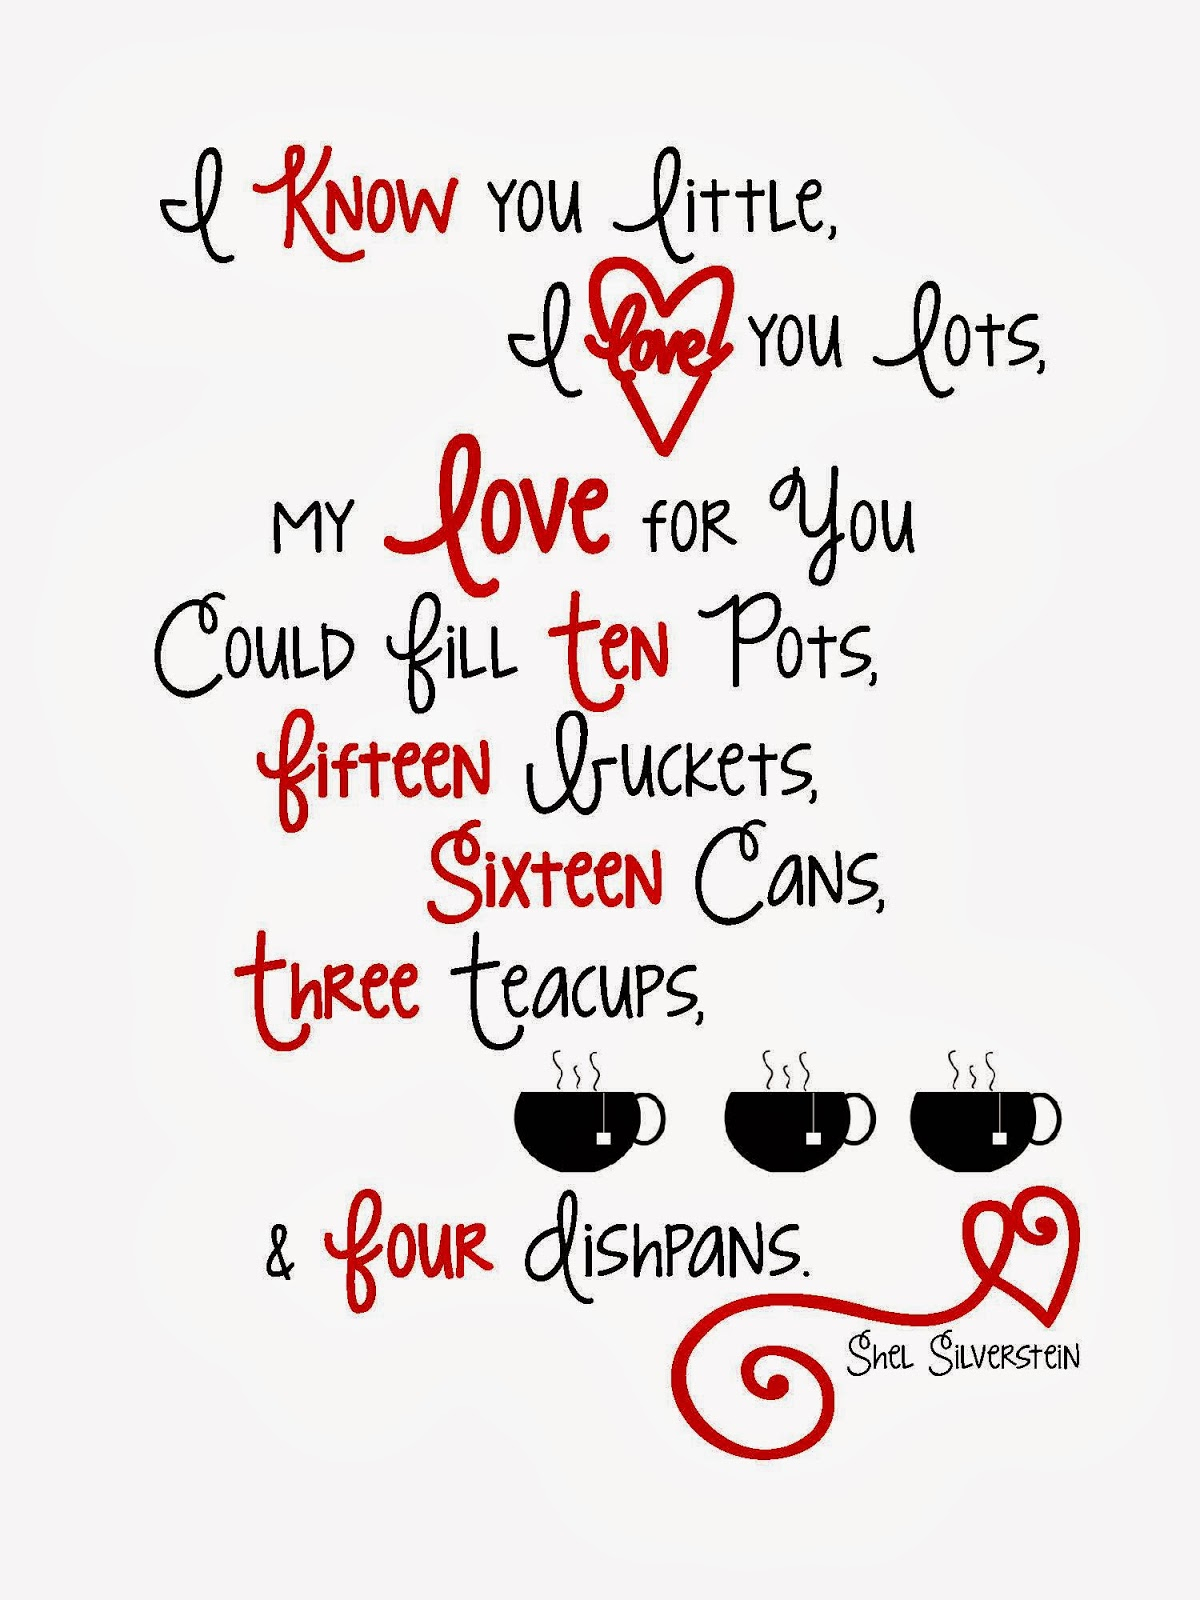 I Know you little,
I love you lots,
my love for You
Could fill ten Pots,
fifteen buckets,
Sixteen Cans,
three teacups,
& four dishpans.
Shel Silverstein